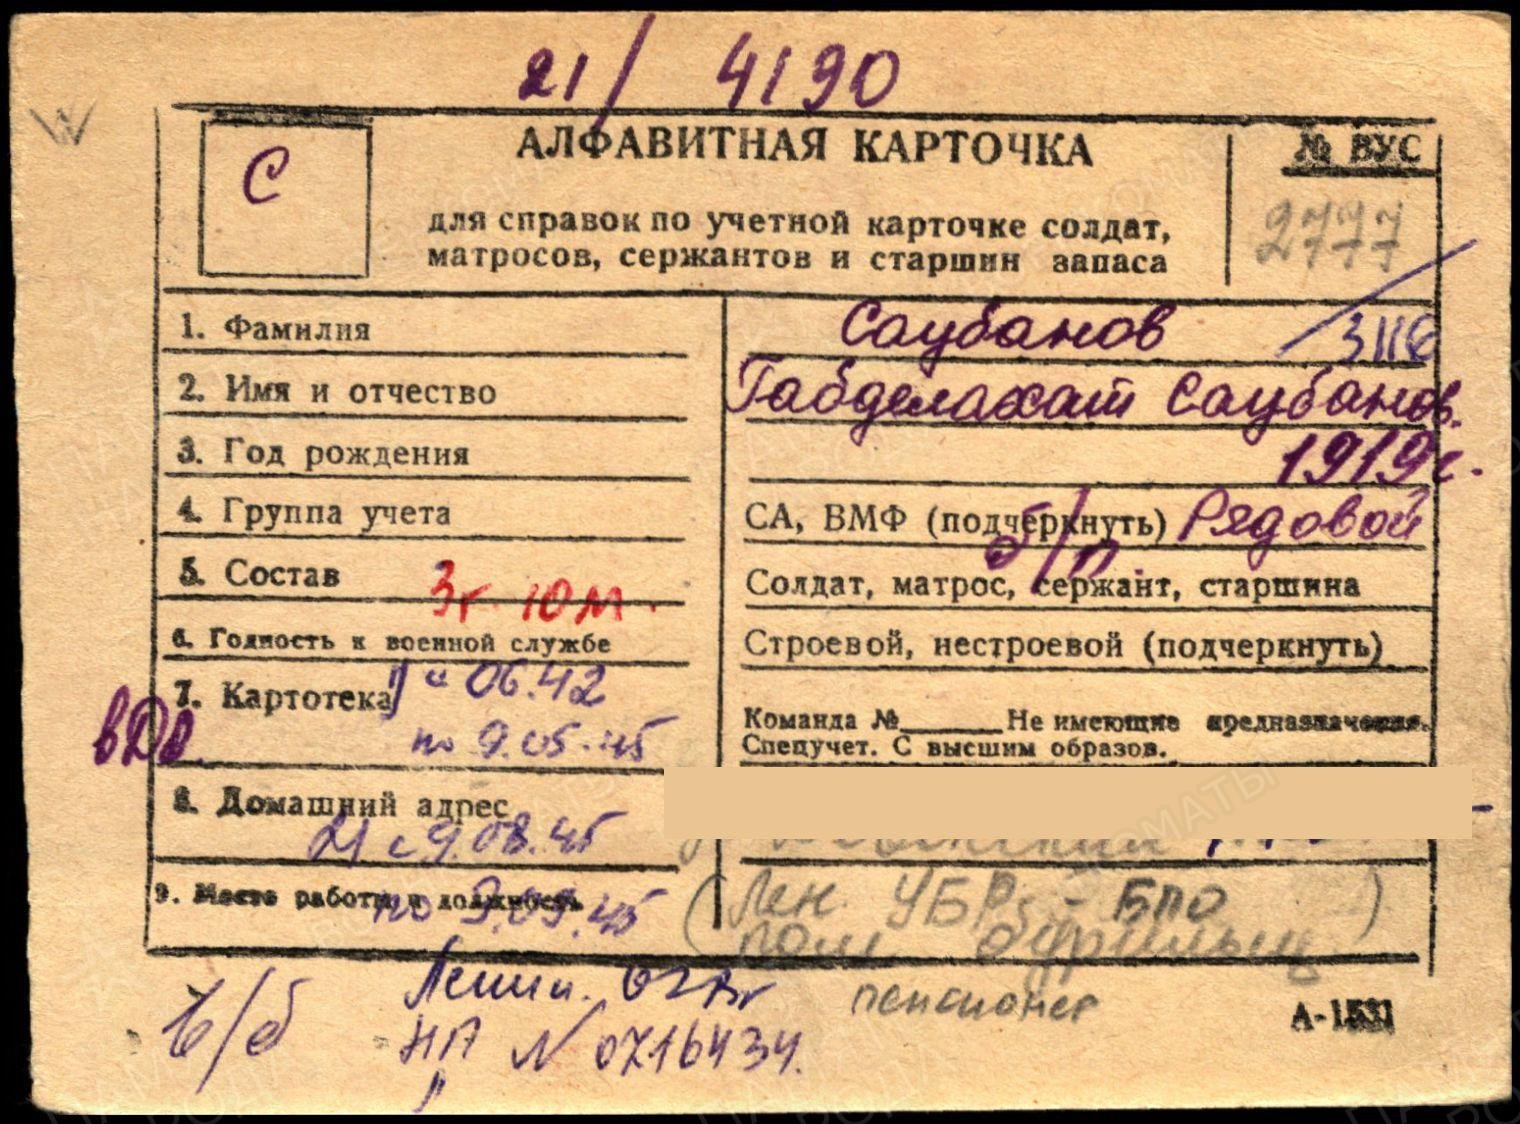 21/ 4190
С
АЛФАВИТНАЯ КАРТОЧКА
№ ВУС
для справок по учетной карточке солдат,
матросов, сержантов и старшин запаса
2777
1. Фамилия
Саубанов
/3116
2. Имя и отчество
Габделахат Саубанов.
3. Год рождения
1919г.
4. Группа учета
СА, ВМФ (подчеркнуть) Рядовой
б/п.
5. Состав
3г. 10м.
Солдат, матрос, сержант, старшина
6. Годность к военной службе
Строевой, нестроевой (подчеркнуть)
7. Картотека
06.42
по 9.05.45
Команда №______ Не имеющие предназначения.
Спецучет. С высшим образов.
8. Домашний адрес
21 с 9.08.45
9. Место работы и должность
по 3.09.45
(Лен. УБР - БПО)
пом бурильщ
пенсионер
в/б
НА
N 0716434.
А-1531